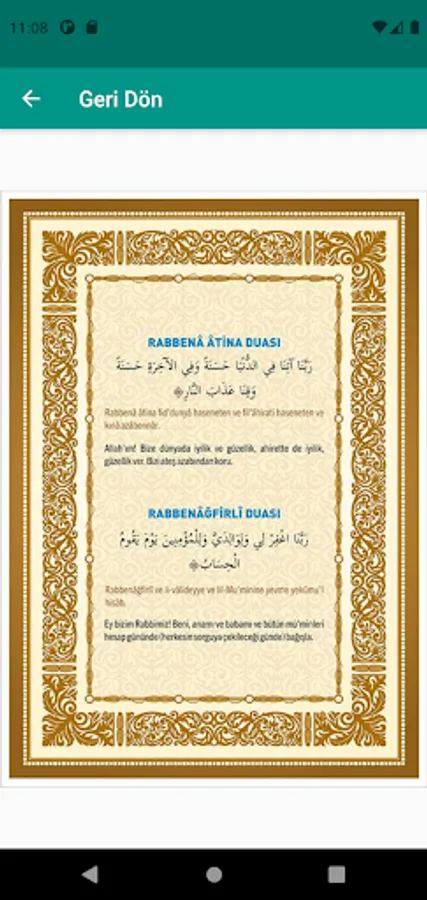 11:08
Geri Dön
RABBENÂ ÂTİNA DUASI
رَبَّنَا آتِنَا فِي الدُّنْيَا حَسَنَةً وَفِي الْآخِرَةِ حَسَنَةً
وَقِنَا عَذَابَ النَّارِ
Rabbenâ âtina fid'dunyâ haseneten ve fil'âhirati haseneten ve
kınâ azâbennâr.
Allah'ım! Bize dünyada iyilik ve güzellik, ahirette de iyilik,
güzellik ver. Bizi ateş azabından koru.
RABBENÂĞFİRLÎ DUASI
رَبَّنَا اغْفِرْ لِي وَلِوَالِدَيَّ وَلِلْمُؤْمِنِينَ يَوْمَ يَقُومُ
الْحِسَابُ
Rabbenâğfirlî ve li-vâlideyye ve lil-Mu'minine yevme yekûmu'l
hisâb.
Ey bizim Rabbimiz! Beni, anamı ve babamı ve bütün mü'minleri
hesap gününde (herkesin sorguya çekileceği günde) bağışla.